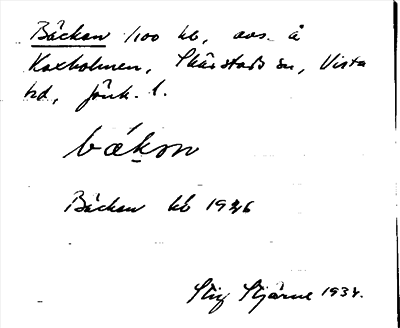 Bäcken 1/100 kb, avs. å
Kaxholmen, Skärstads sn, Vista
hd, Jönk. l.
bäkɘn
Bäcken kb 1926
Stig Stjärne 1934.